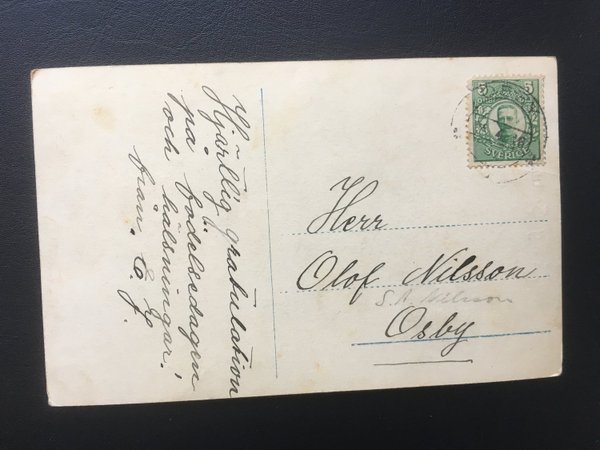 Hjärtlig gratulation
på födelsedagen
och hälsningar!
från. E. G.
5 5
SVERIGE
Herr
Olof Nilsson
S. N. Nilsson
Osby